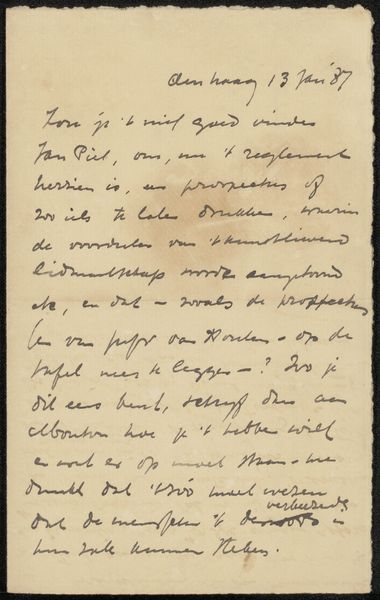 den haag 13 Jan '87
Zou je 't niet goed vinden
Jan Piet, om, nu 't reglement
herzien is, een prospectus of
zoo iets te laten drukken, waarin
de voordeelen van 't kunstlievend
lidmaatschap worden aangetoond
etc, en dat – zooals de prospectus
van van Houten – op de
tafel neer te leggen – ? Zoo je
dit eens bent, schrijf dan aan
hoe je 't hebben wilt
en wat er op moet staan – me
dunkt dat 't zóó moet wezen
verbeeld
dat de menschen 't in
hun zak kunnen steken.